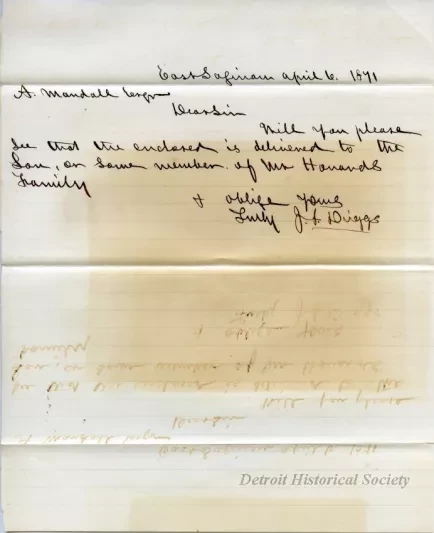 East Saginaw April 6. 1871
A. Mandall Esqr
Dear Sir
Will you please
see that the enclosed is delivered to the
Son, or some member of Mr Howards
Family
& oblige yours
Truly J. F. Driggs
Detroit Historical Society